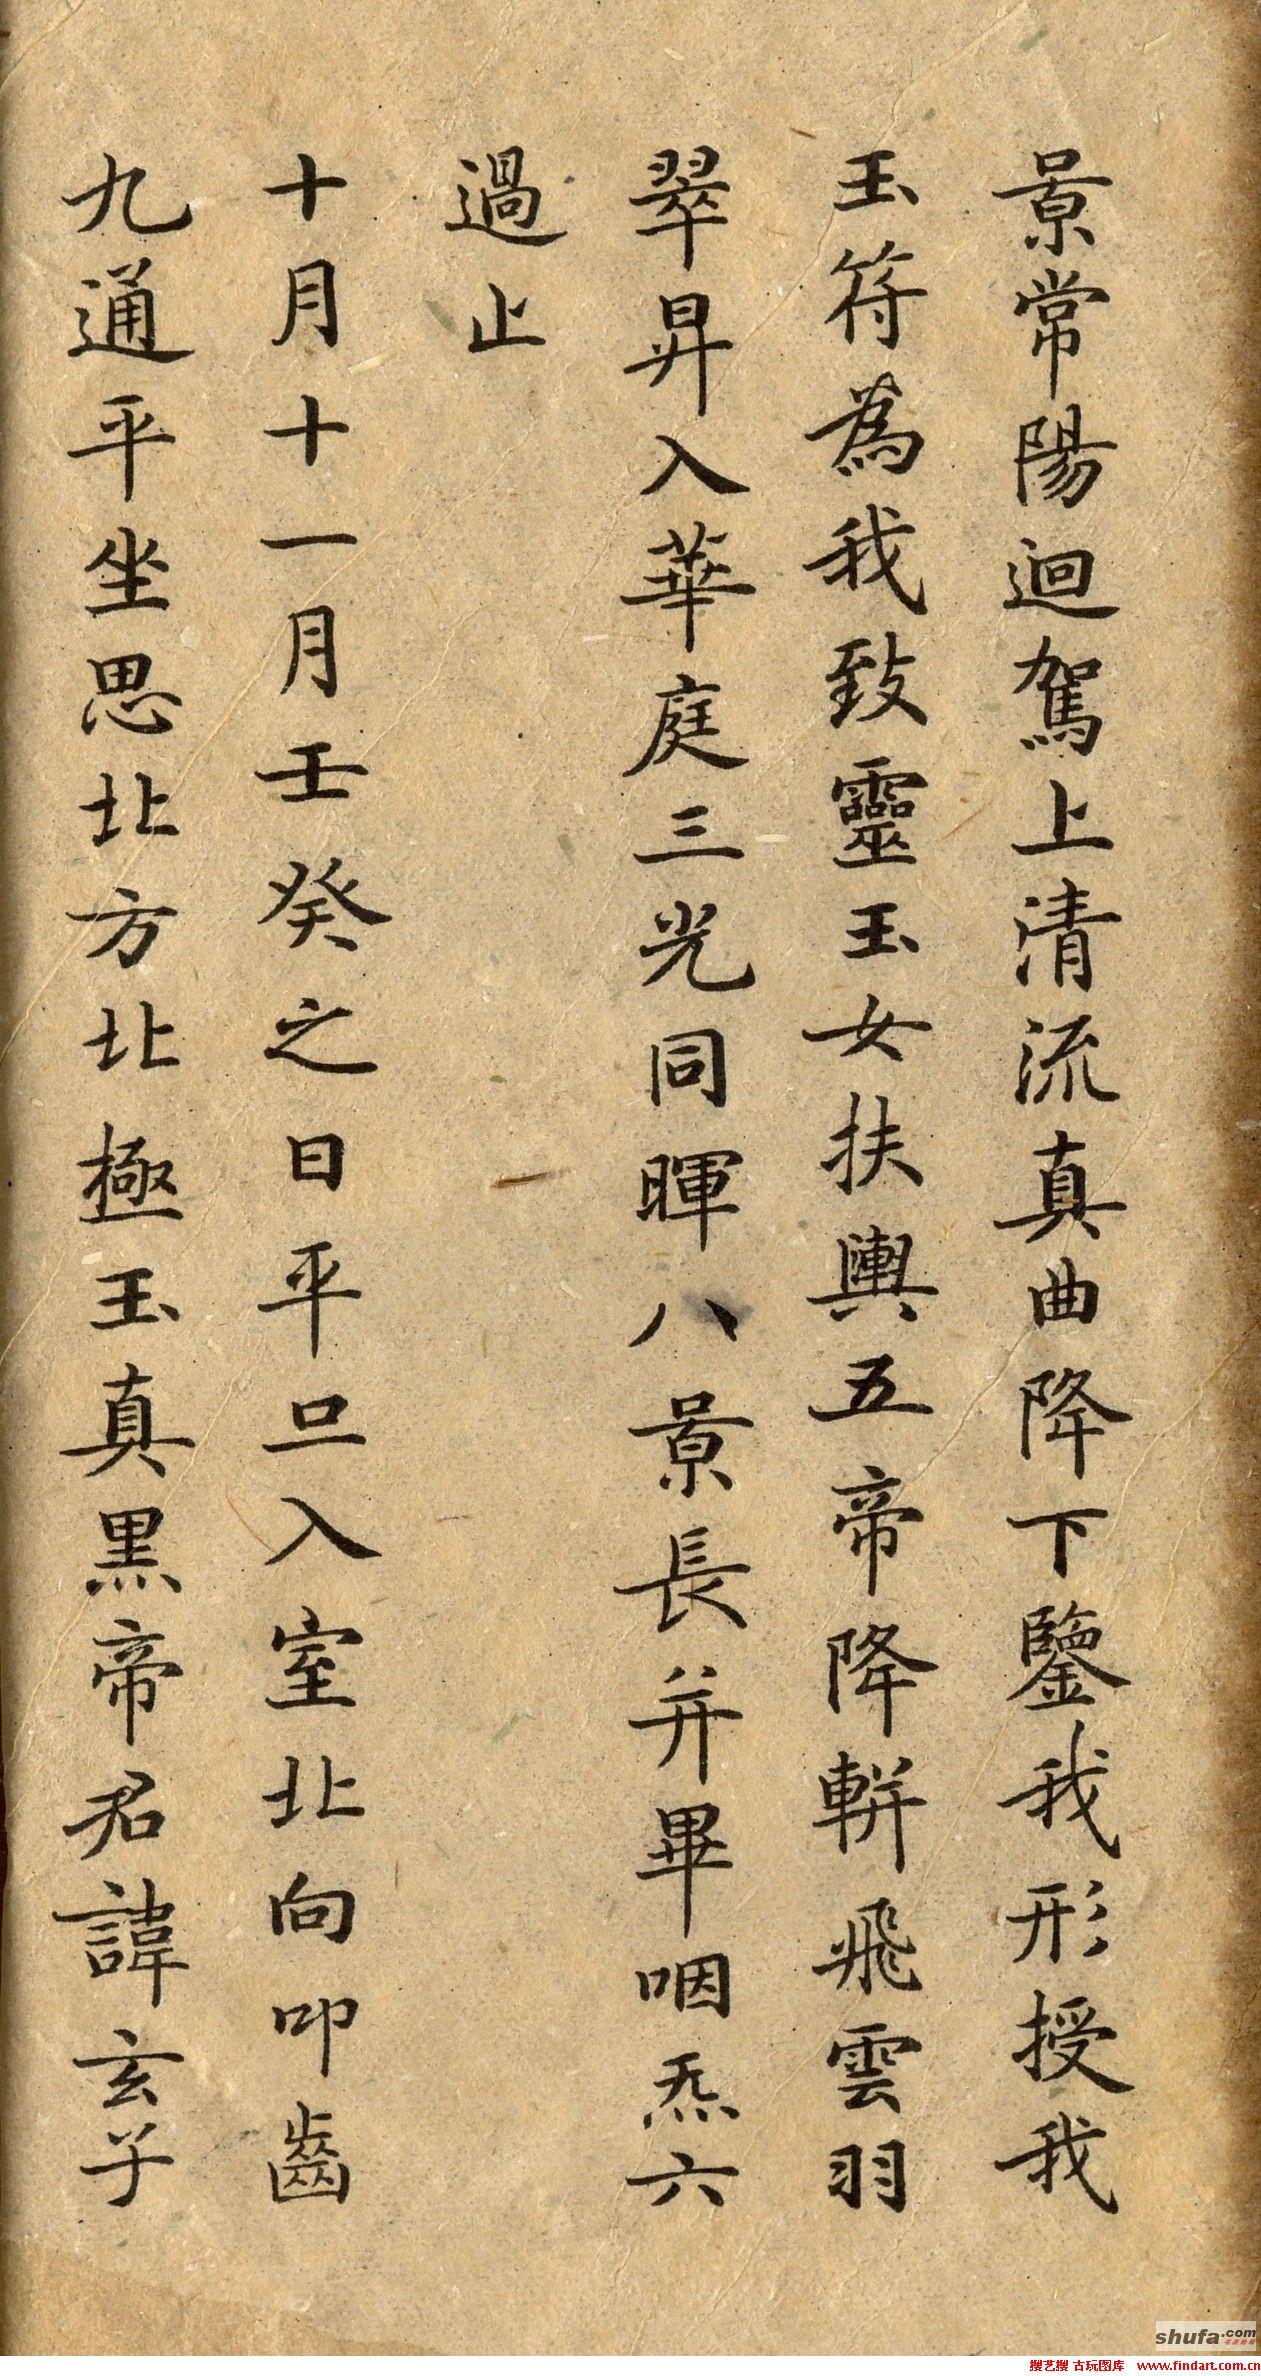 景常陽迴駕上清流真曲降下鑒我形授我
玉符為我致靈玉女扶輿五帝降軿飛雲羽
翠昇入華庭三光同暉八景長并畢咽炁六
過止
十月十一月壬癸之日平旦入室北向叩齒
九通平坐思北方北極玉真黑帝君諱玄子
shufa.com
搜艺搜 古玩图库 www.findart.com.cn